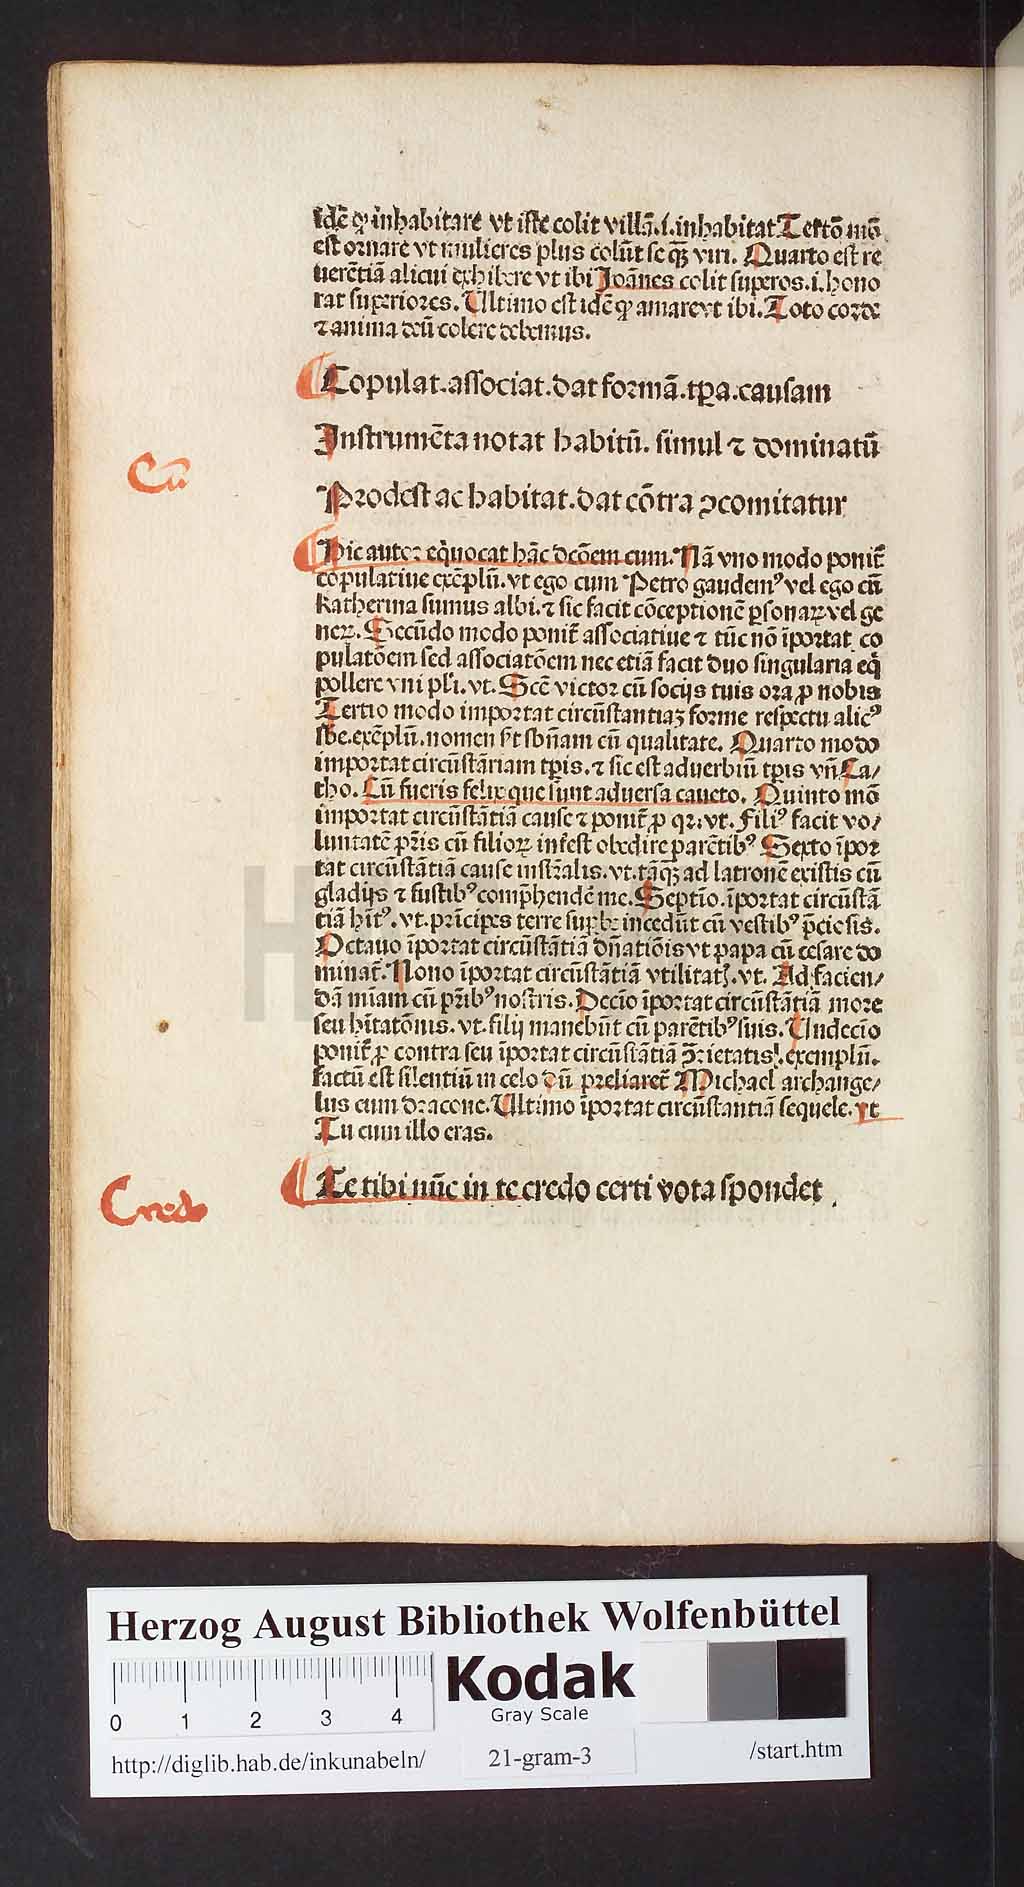 idē ꝙ inhabitare vt iste colit villā.i.inhabitat Tertō mō
est ornare vt mulieres plus colūt se q̄ꝫ viri. Quarto est re
uerētiā alicui exhibere vt ibi Joānes colit superos.i.hono
rat superiores. Ultimo est idē ꝙ amare vt ibi. Toto corde
⁊ anima deū colere debemus.
Copulat.associat.dat formā.tꝑa.causam
Instrumēta notat habitū. simul ⁊ dominatū
Cū
Prodest ac habitat.dat cōtra ꝯcomitatur
Hic autor eq̄uocat hāc dcōem cum. Nā vno modo ponit̄
copulatiue exēplū. vt ego cum Petro gaudemꝰ vel ego cū
Katherina sumus albi.⁊ sic facit cōceptionē ꝑsonaꝝ vel ge
neꝝ. Secūdo modo ponit̄ associatiue ⁊ tūc nō īportat co
pulatōem sed associatōem nec etiā facit duo singularia eq̄
pollere vni pl̄i.vt. Scē victor cū socijs tuis ora ꝓ nobis
Tertio modo importat circūstantiaꝫ forme respectu alicꝰ
sbe.exēplū.nomen st̄ sbn̄am cū qualitate. Quarto modo
importat circūstāriam tꝑis.⁊ sic est aduerbiū tꝑis vn̄ Ca/
tho. Cū fueris felix que sunt aduersa caueto. Quinto mō
importat circūstātiā cause ⁊ ponit̄ ꝓ qꝛ.vt. Filiꝰ facit vo/
luntatē pr̄is cū filioꝝ infest obedire parētibꝰ Sexto īpor
tat circūstātiā cause instr̄alis.vt.tāq̄ꝫ ad latronē existis cū
gladijs ⁊ fustibꝰ comp̄hendē me. Septīo.īportat circūstā
tiā hīt̄ꝰ.vt.pr̄incipes terre superbe incedūt cū vestibꝰ p̄ciosis.
Octauo īportat circūstātiā dn̄atiōis vt papa cū cesare do
minat̄. Nono īportat circūstātiā vtilitatꝭ.vt. Ad facien/
dā mīam cū pr̄ibꝰ nostris. Decīo īportat circūstātiā more
seu hīt̄atōnis.vt.filij manebūt cū parētibꝰ suis. Undecīo
ponit̄ ꝓ contra seu īportat circūstātiā ꝯ̄rietatis.exemplū.
factū est silentiū in celo dū preliaret̄ Michael archange/
lus cum dracone. Ultimo īportat circūstantiā sequele. vt
Tu cum illo eras.
Te tibi nūc in te credo certi vota spondet.
Credo
Herzog August Bibliothek Wolfenbüttel
Kodak
Gray Scale
0 1 2 3 4
http://diglib.hab.de/inkunabeln/ 21-gram-3 /start.htm